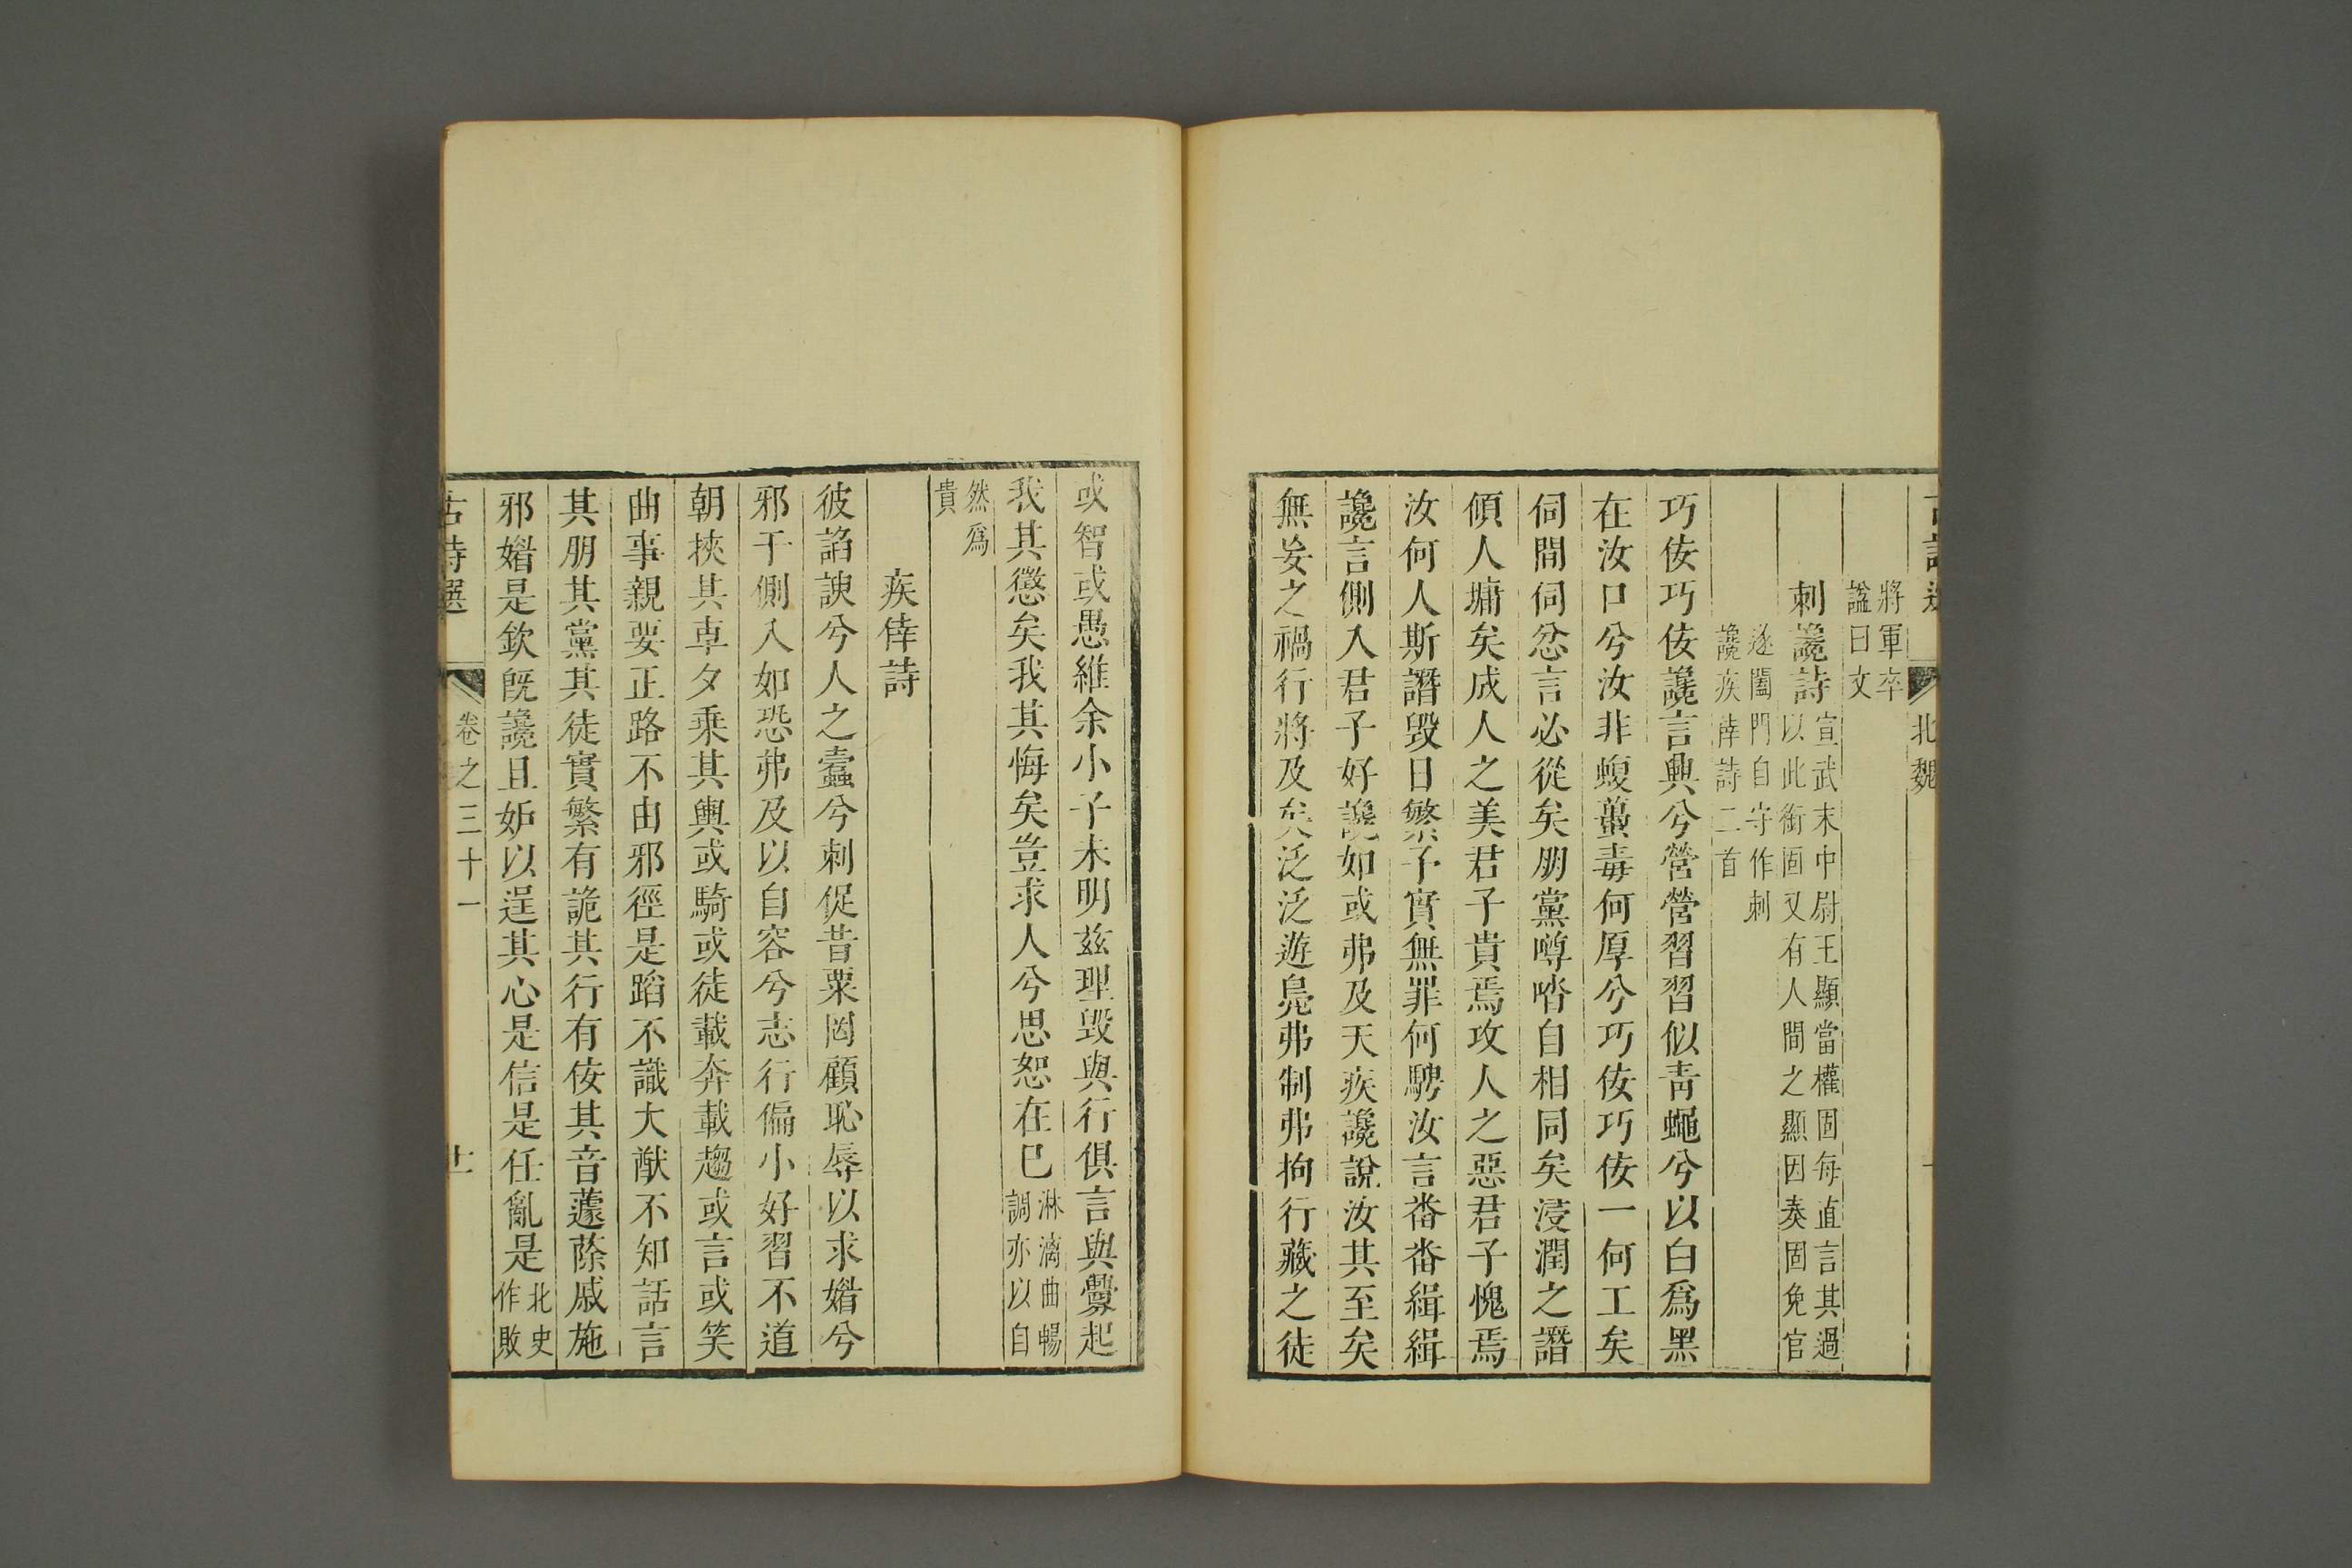 北魏
將軍卒
諡曰文
刺讒詩
宣武末中尉王顯當權固每直言其過
以此銜固又有人間之顯因奏固免官
遂闔門自守作刺
讒疾倖詩二首
巧佞巧佞讒言興兮營營習習似青蠅兮以白爲黑
在汝口兮汝非蝮蠆毒何厚兮巧佞巧佞一何工矣
伺間伺忿言必從矣朋黨噂㳫自相同矣浸潤之譖
傾人墉矣成人之美君子貴焉攻人之惡君子愧焉
汝何人斯譖毀日繁予實無罪何騁汝言番番緝緝
讒言側入君子好讒如或弗及天疾讒說汝其至矣
無妄之禍行將及矣泛泛遊鳧弗制弗拘行藏之徒
或智或愚維余小子未明茲理毀與行俱言與釁起
我其懲矣我其悔矣豈求人兮思恕在已
淋漓曲暢
調亦以自
然爲
貴
疾倖詩
彼諂諛兮人之蠹兮刺促昔粟罔顧恥辱以求媚兮
邪干側入如恐弗及以自容兮志行偏小好習不道
朝挾其車夕乘其輿或騎或徒載奔載趨或言或笑
曲事親要正路不由邪徑是蹈不識大猷不知話言
其朋其黨其徒實繁有詭其行有佞其音蘧蒢戚施
邪媚是欽既讒且妒以逞其心是信是任亂是
北史
作敗
古詩選
卷之三十一
十一